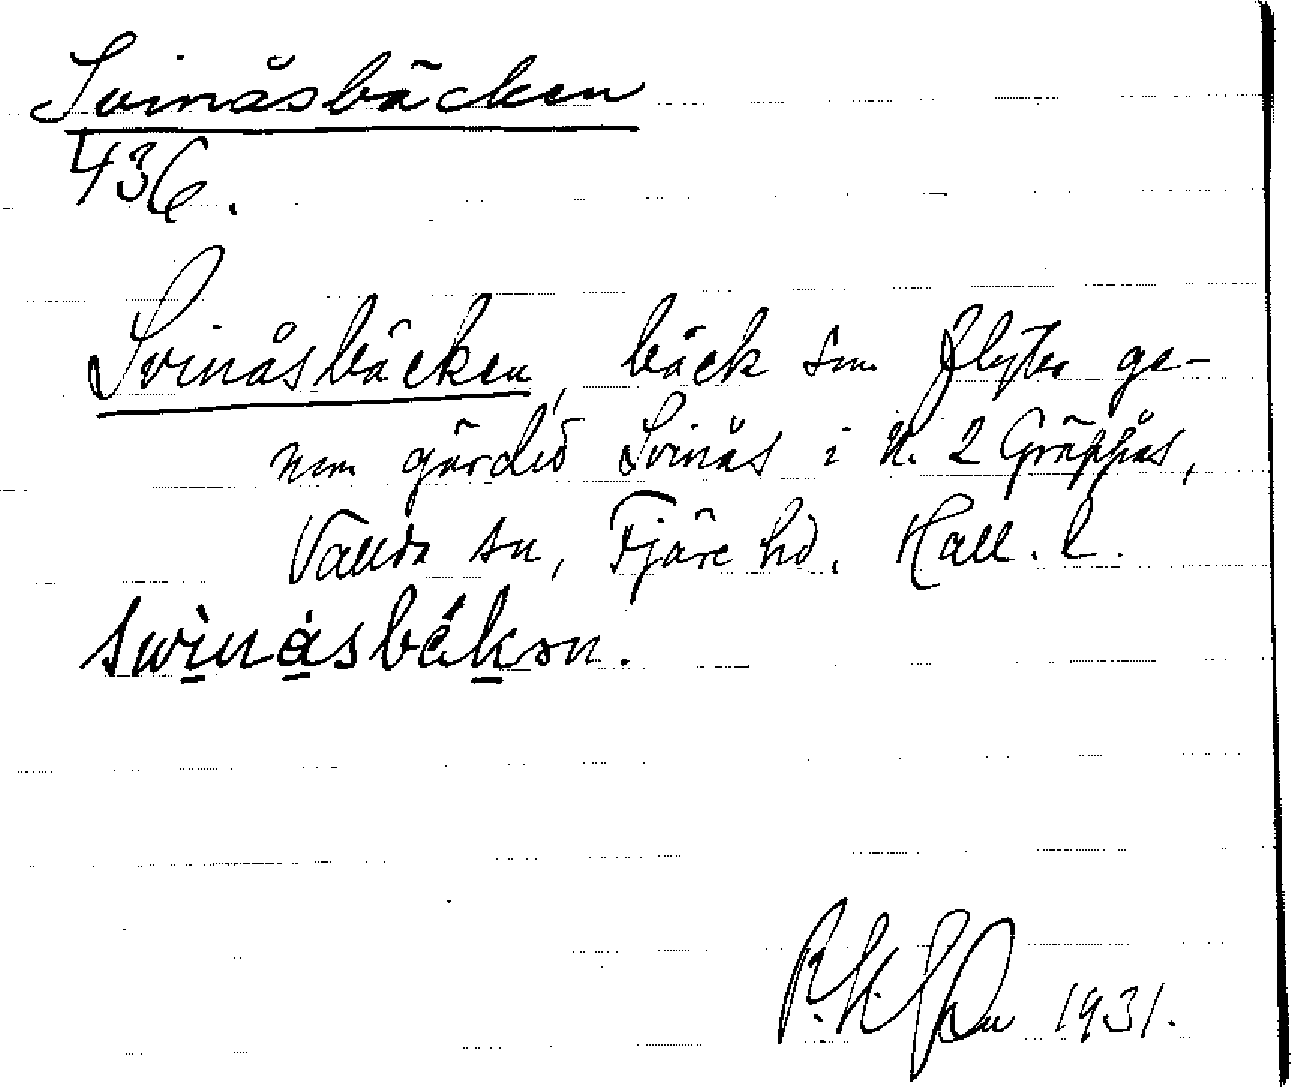 Svinåsbäcken
436.
Svinåsbäcken, bäck som flyter ge-
nom gärdet Svinås i N. 2 Gräppås,
Vallda sn, Fjäre hd. Hall. l.
swinåsbäkən.
1931.